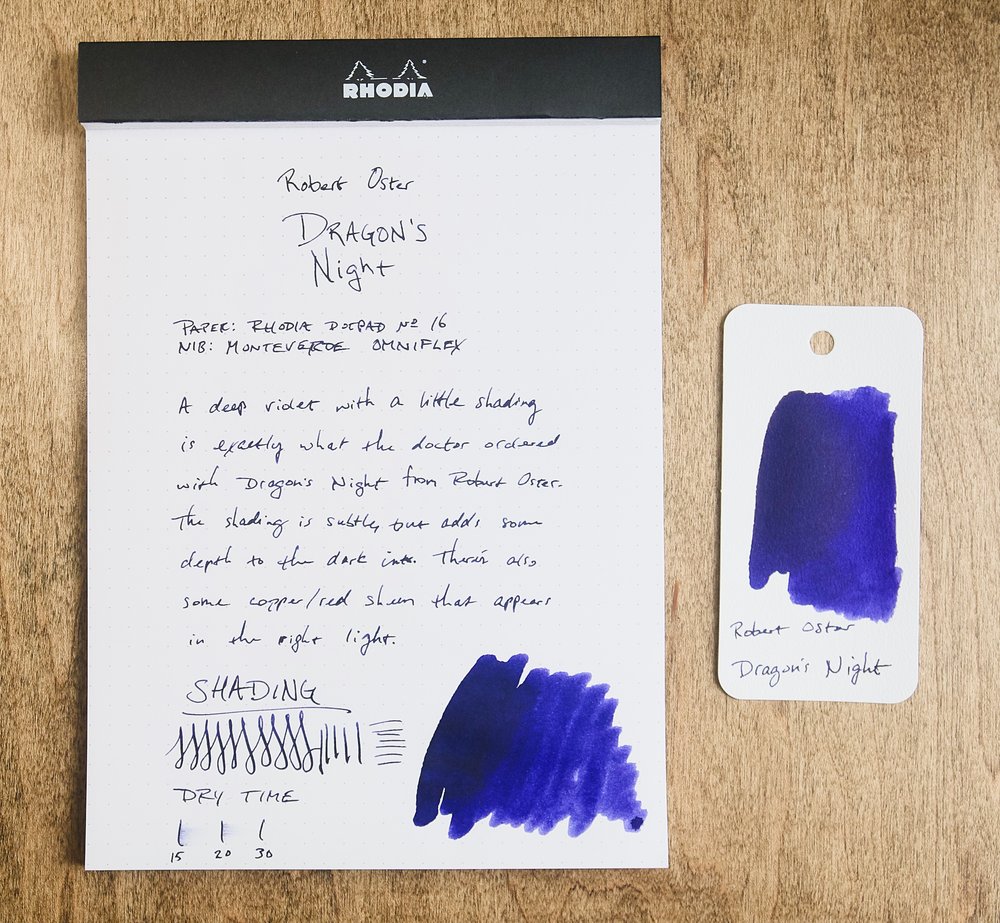 RHODIA
Robert Oster
DRAGON'S
Night
PAPER: RHODIA DOTPAD Nº 16
NIB: MONTEVERDE OMNIFLEX
A deep violet with a little shading
is exactly what the doctor ordered
with Dragon's Night from Robert Oster.
The shading is subtle, but adds some
depth to the dark ink. There's also
some copper/red sheen that appears
in the right light.
SHADING
DRY TIME
15 20 30
Robert Oster
Dragon's Night